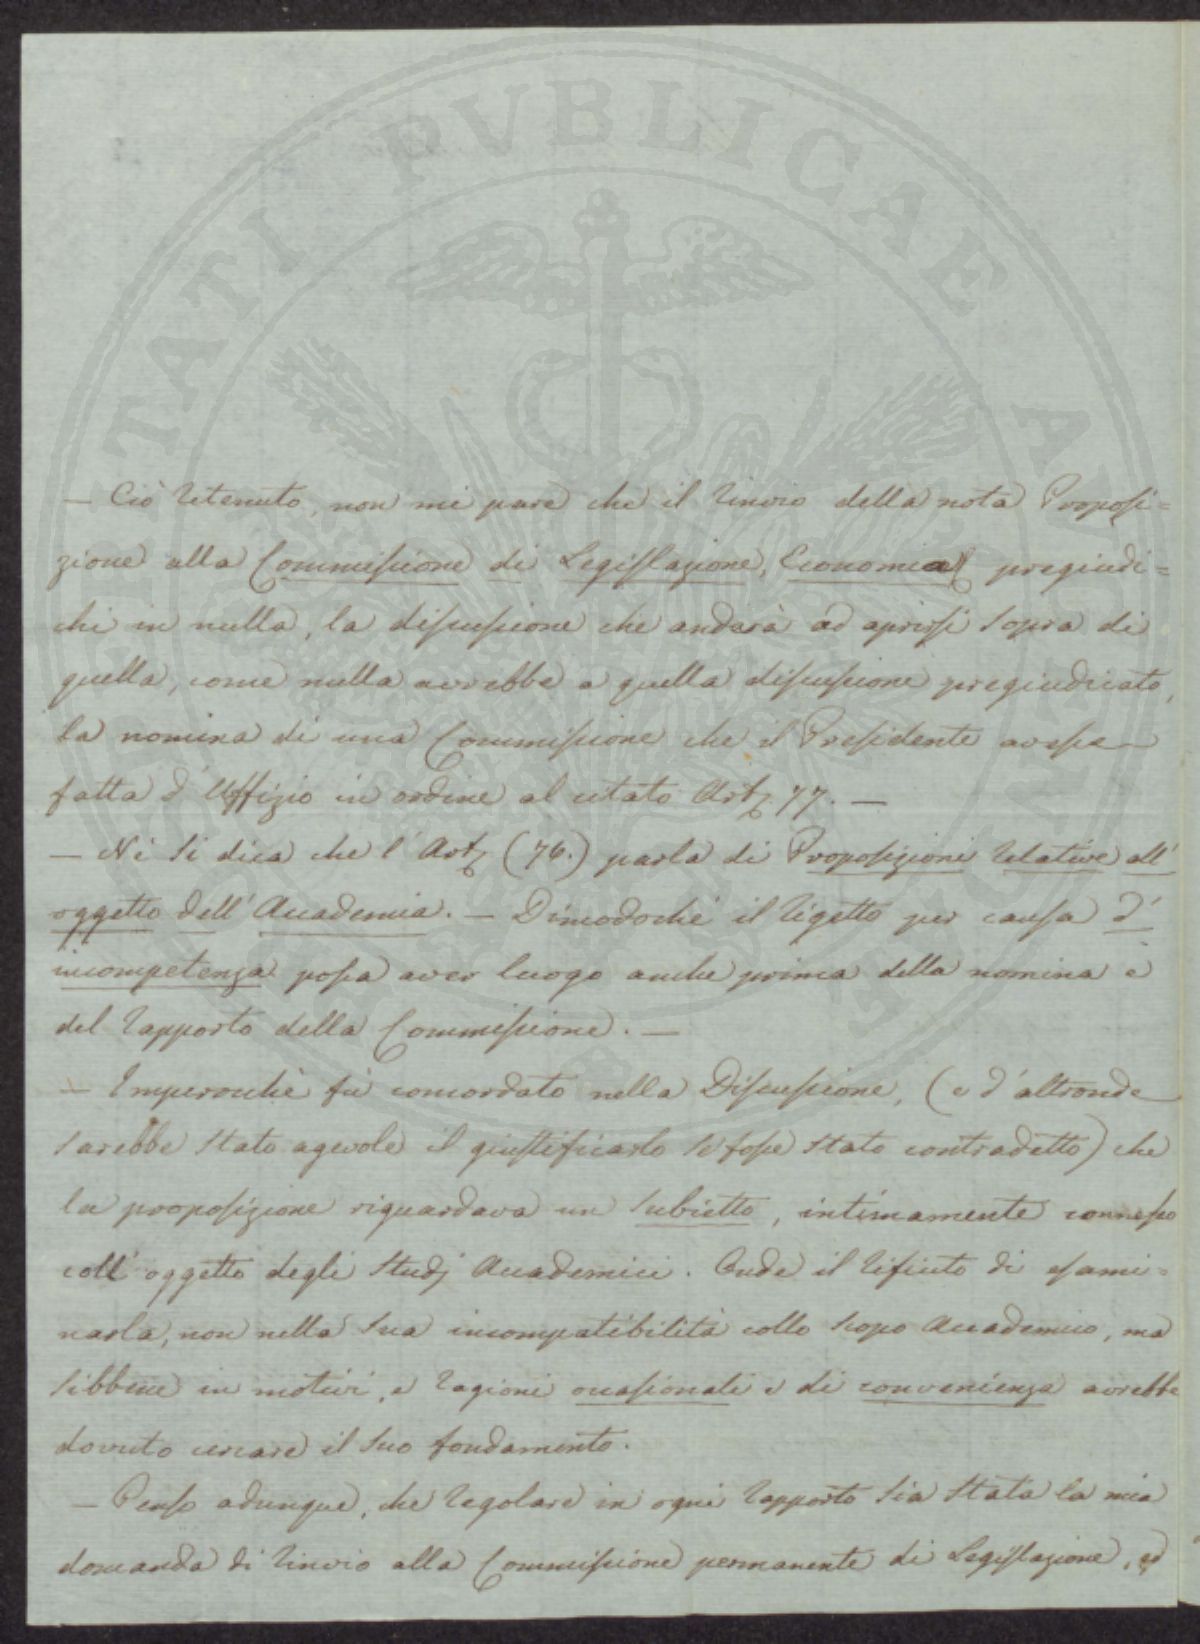 — Ciò ritenuto, non mi pare che il rinvio della nota Proposi=
zione alla Commissione di Legislazione, Economia pregiudi=
chi in nulla, la discussione che andarà ad aprirsi sopra di
quella, come nulla avrebbe a quella discussione pregiudicato,
la nomina di una Commissione che il Presidente avesse
fatta d'Uffizio in ordine al citato Art. 77. —
— Nè si dica che l'Art. (76.) parla di Proposizioni relative all'
oggetto dell'Accademia. — Dimodochè il rigetto per causa d'
incompetenza possa aver luogo anche prima della nomina e
del rapporto della Commissione. —
— Imperochè fù concordato nella Discussione, (e d'altronde
sarebbe stato agevole il giustificarlo se fosse stato contradetto) che
la proposizione riguardava un subietto, intimamente connesso
coll'oggetto degli Studj Accademici. Onde il rifiuto di esami=
narla, non nella sua incompatibilità collo scopo Accademico, ma
sibbene in motivi, e ragioni occasionali e di convenienza avrebbe
dovuto cercare il suo fondamento.
— Penso adunque, che regolare in ogni rapporto sia stata la mia
domanda di rinvio alla Commissione permanente di Legislazione, ed
PUBLICAE